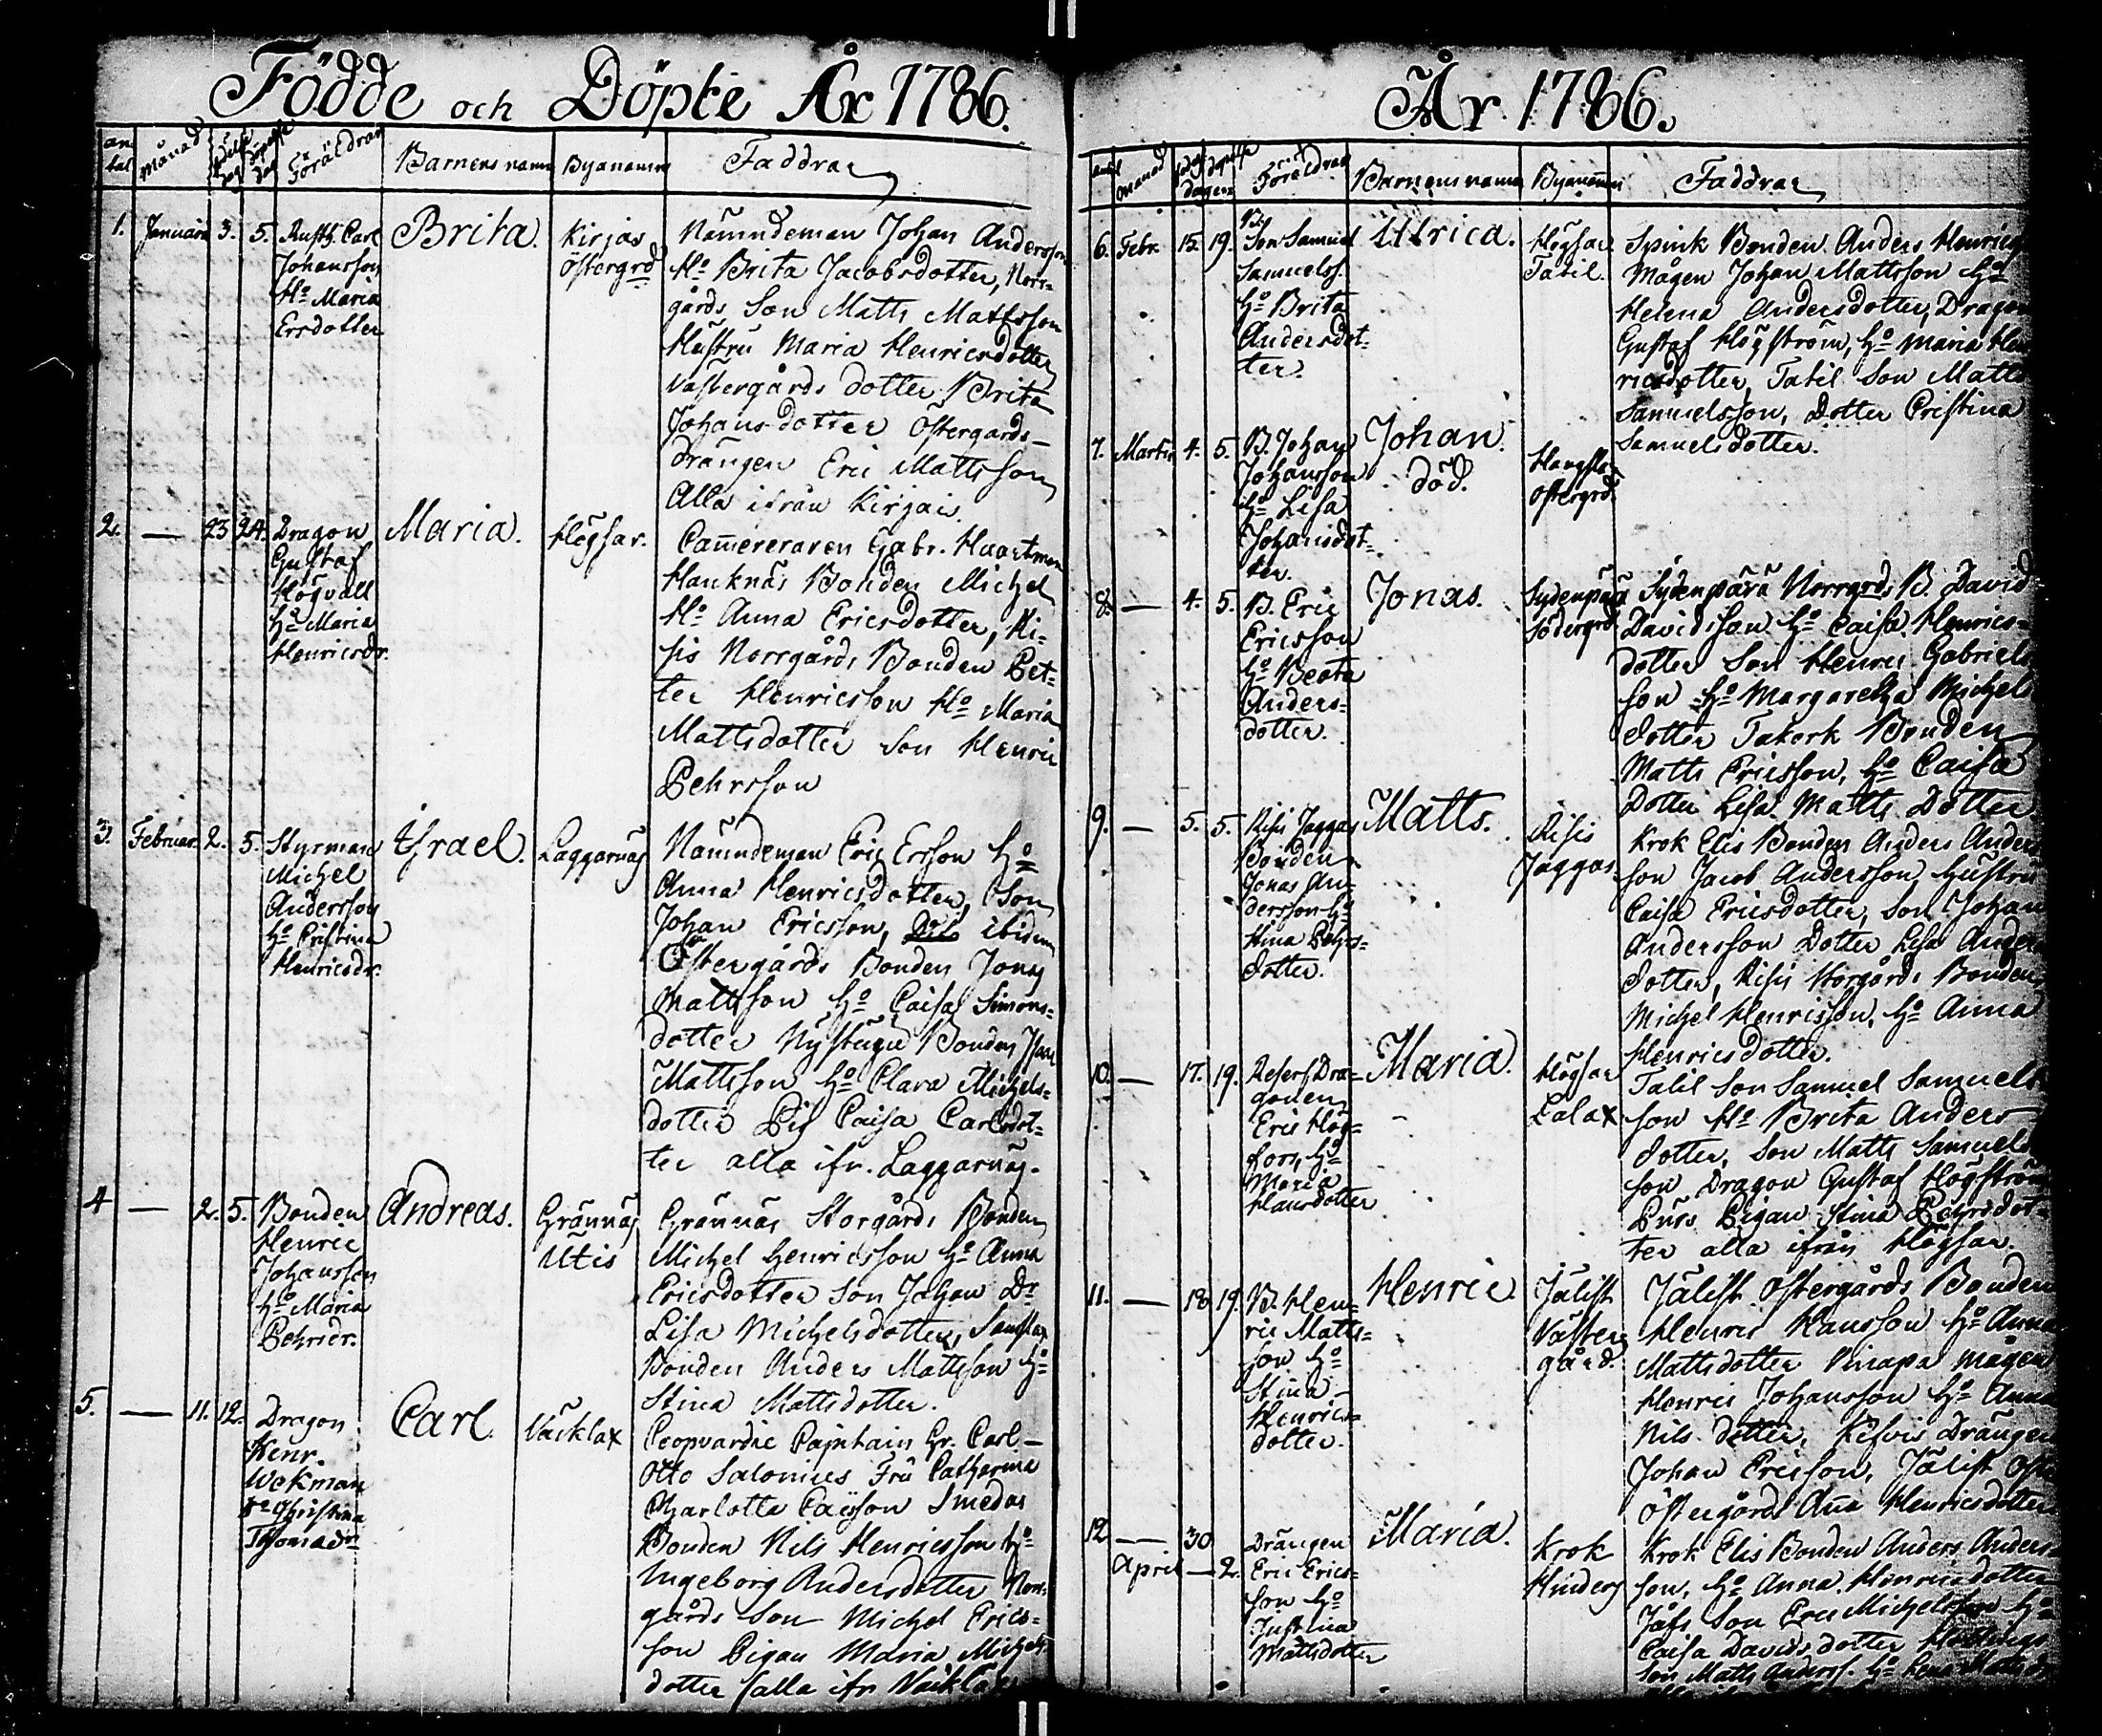 Födde och Döpte År 1786.
an tal Månad födelse dag döpelse dag Föräldrar Barnens namn Byanamn Faddrar
1. Januari 3. 5. Rusth. Carl Johansson Ho Maria Ersdotter
Brita.
Kirjas Östergrd
Nämndeman Johan Andersson
Ho Brita Jacobsdotter, Norr-
gårds Son Matts Mattsson
Hustru Maria Henricsdotter
Västergårds dotter Brita
Johansdotter Östergårds-
drängen Eric Mattsson
Alla ifrån Kirjais.
2. — 23 24. Dragon Gustaf Högvall Ho Maria Henricsdr.
Maria.
Högsar.
Camereraren Gabr. Haartman
Hanknäs Bonden Michel
Ho Anna Ericsdotter, Ri-
sis Norrgårds Bonden Pet-
ter Henricsson Ho Maria
Mattsdotter Son Henric
Pehrsson
3. Februar. 2. 5. Styrman Michel Andersson Ho Cristina Henricsdr.
Israel.
Laggarnäs
Nämndeman Eric Ersson Ho
Anna Henricsdotter, Son
Johan Ericsson, ibidem
Östergårds Bonden Jonas
Mattsson Ho Caisa Simons-
dotter Nystugu Bonden
Mattsson Ho Clara Michels-
dotter Pig Caisa Carlsdot-
ter alla ifr. Laggarnäs.
4 — 2. 5. Bonden Henric Johansson Ho Maria Pehrsdr.
Andreas.
Grännäs Utis
Grännäs Storgårds Bonden
Michel Henricsson Ho Anna
Ericsdotter Son Johan Dr
Lisa Michelsdotter,
Bonden Anders Mattsson Ho
Stina Mattsdotter.
5. — 11. 12. Dragon Henr. Wekman Ho Christina Thomasdr
Carl.
Väcklax
Coopvardie Capitain Hr. Carl
Otto Salonius Fru Catharina
Charlotta Smedas
Bonden Nils Henricsson Ho
Ingeborg Andersdotter Norr-
gårds Son Michel Erics-
son Pigan Maria Michels-
dotter alla ifr Väcklax
År 1786.
antal Månad föds döpelse dagen Föräldrar Barnens namn Byanamn Faddrar
6. Febr. 15. 19. Son Samuel Samuelss. Ho Brita Andersdot-ter.
Ulrica.
Högsar Tatil.
Spink Bonden Anders Henrics
Mågen Johan Mattsson Ho
Helena Andersdotter, Dragon
Gustaf Högström, Ho Maria Hen
ricsdotter, Tatil Son Matts
Samuelsson, Dotter Cristina
Samuelsdotter.
7. Martii 4. 5. B. Johan Johansson Ho Lisa Johansdot-ter.
Johan. död.
Östergrd.
8. — 4. 5. B. Eric Ericsson Ho Beata Anders-dotter.
Jonas.
Sydenpärä Södergrd.
Sydenpärä Norrgrds B. David
Davidsson Ho Caisa Henrics-
dotter Son Henric Gabriels
son Ho Margaretha Michels
dotter Takork Bonden
Matts Ericsson, Ho Caisa
Dotter Lisa Matts Dotter
9. — 5. 5. Risis Jaggas Bonden Jonas An-dersson Ho Stina Pehrs-dotter.
Matts.
Risis Jaggas.
Krok Elis Bonden Anders Anders
son Jacob Andersson Hustru
Caisa Ericsdotter, Son Johan
Andersson Dotter Lisa Anders
dotter, Risis Storgårds Bonden
Michel Henrisson, Ho Anna
Henricsdotter.
10. — 17. 19. Reserf Dra-gonen Eric Hög-fors, Ho Maria Hansdotter
Maria.
Högsar Lalax
Tatil Son Samuel Samuels
son Ho Brita Anders
dotter, Son Matts Samuels
son Dragon Gustaf Högström
Purs Pigan Stina Pehrsdot-
ter alla ifrån Högsar.
11. — 18 19. B. Hen-ric Matts-son Ho Stina Henrics-dotter.
Henric
Jälist Väster gård.
Jälist Östergårds Bonden
Henric Hansson Ho Anna
Mattsdotter Knapa Mågen
Henric Johansson Ho Anna
Nils dotter, Drängen
Johan Ericsson, Jälist
Östergårds Anna Henricsdotter
12 — 30 April — 2. Drängen Eric Erics-son Ho Justina Mattsdotter
Maria.
Krok Hinders
Krok Elis Bonden Anders Anders
son, Ho Anna Henricsdotter
Son Eric Michelsson Ho
Caisa Davidsdotter
Son Matts Anderss. Ho Lena Matts